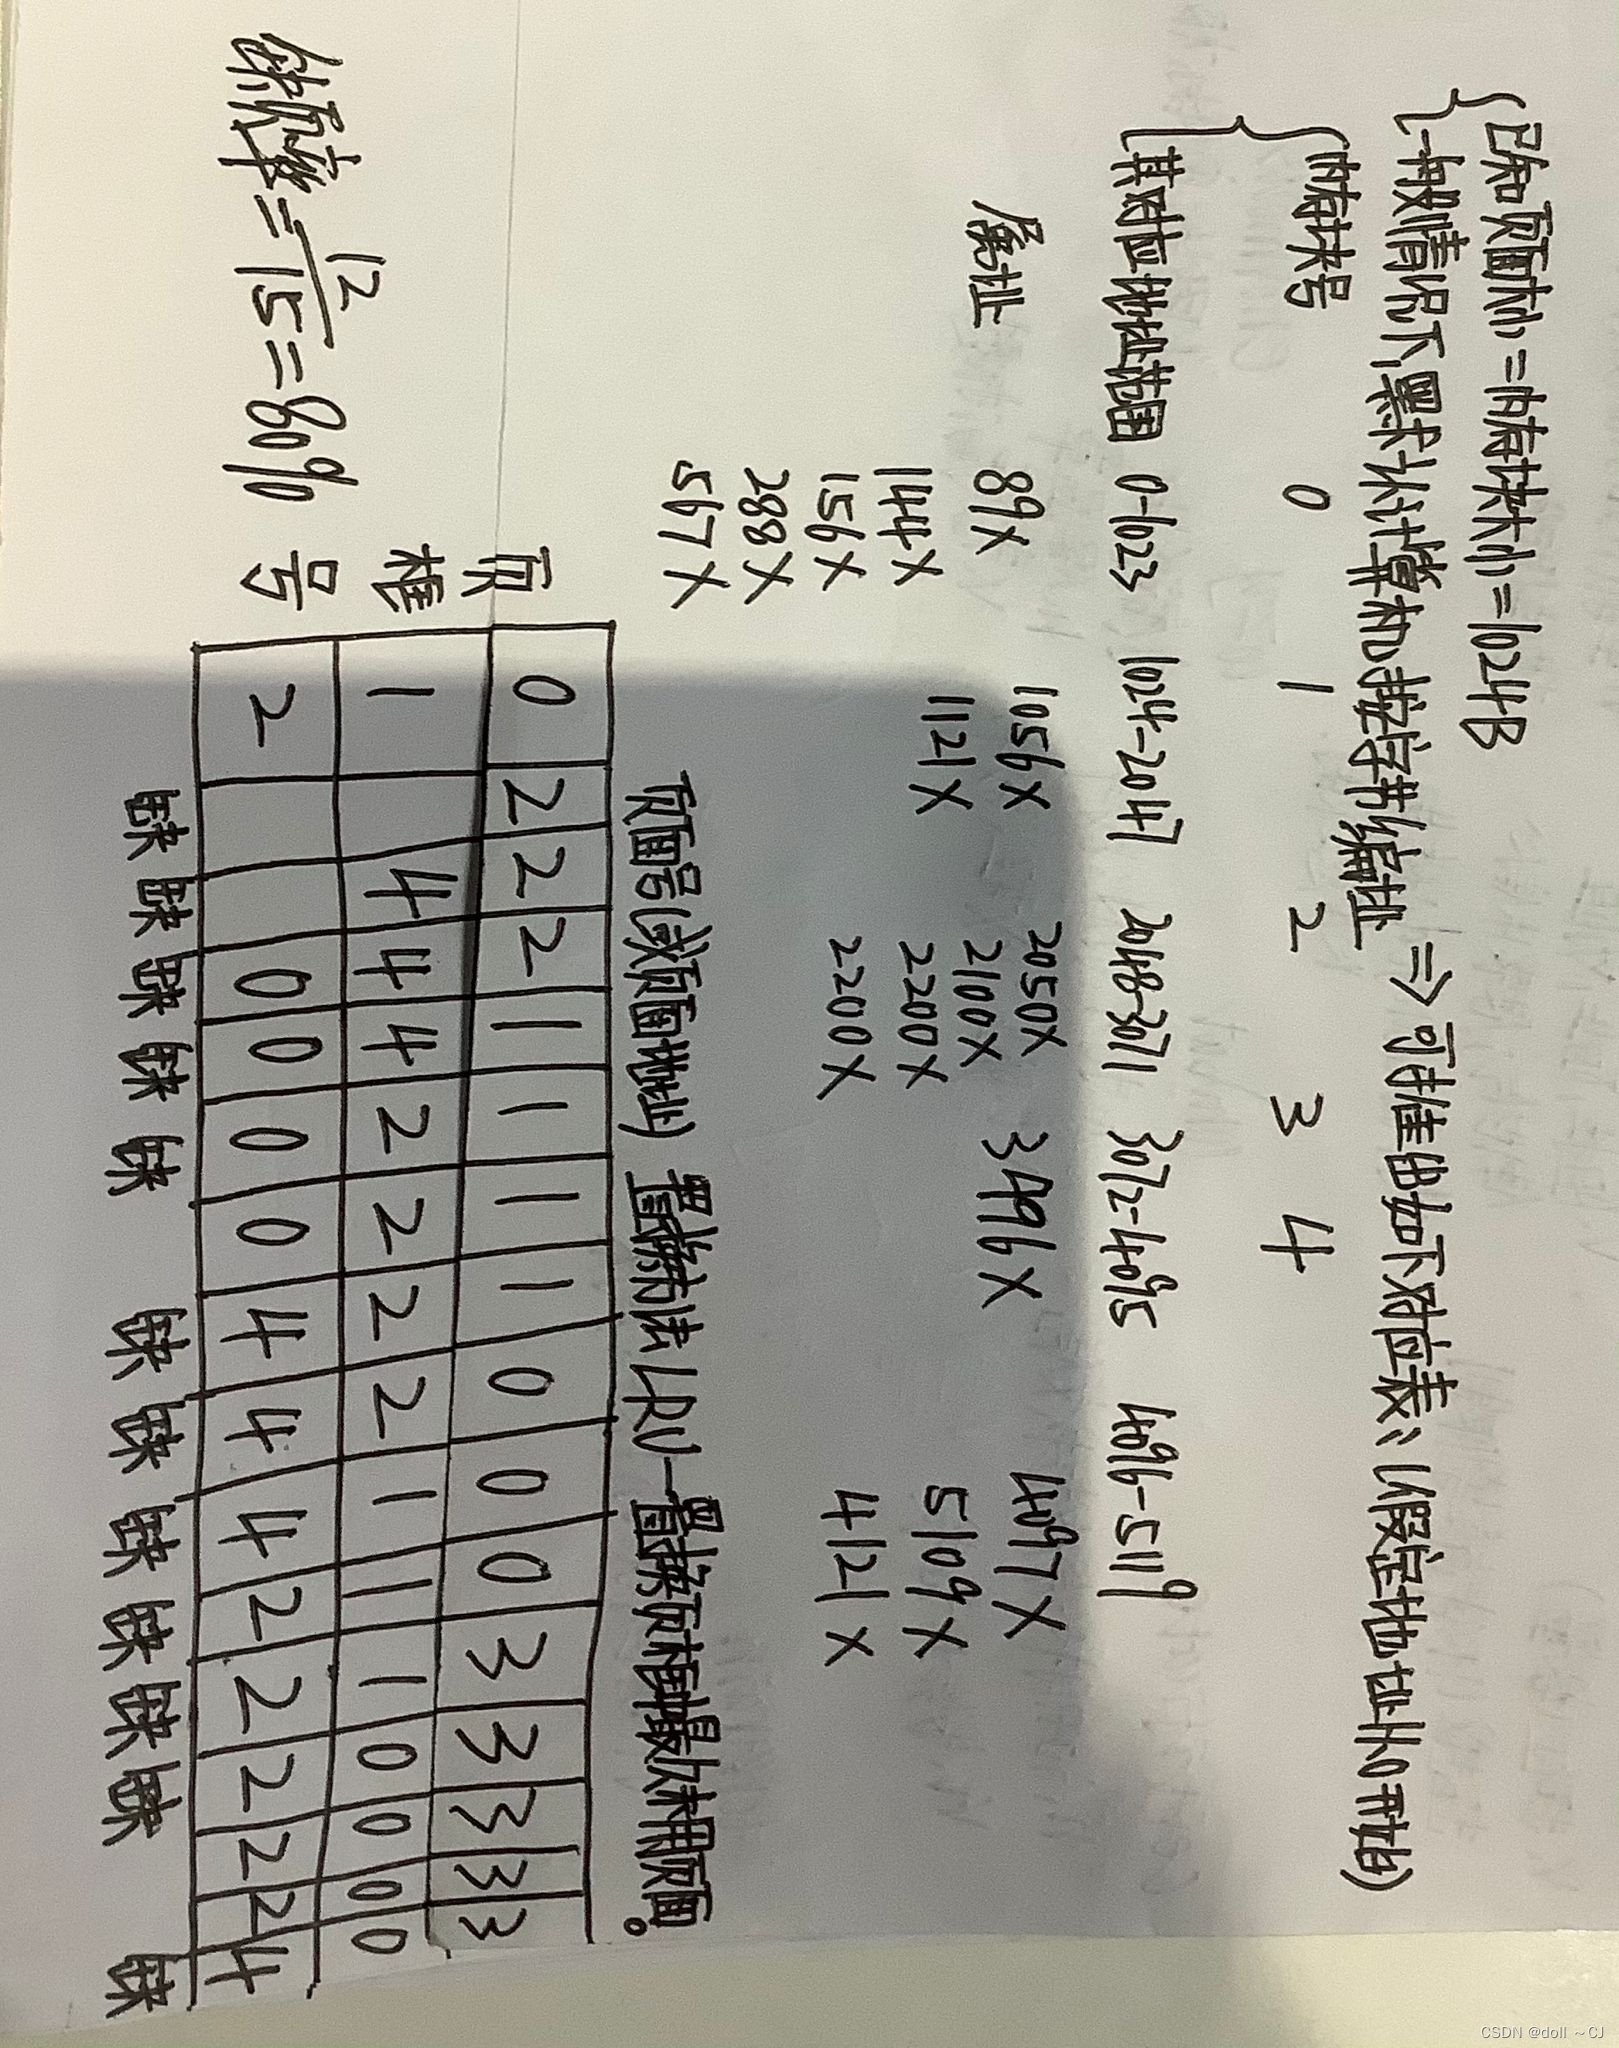 已知页面大小=内存块大小=1024B
一般情况下,默认计算机按字节编址 ⇒ 可推出如下对应表:(假定地址从0开始)
内存块号 0 1 2 3 4
其对应地址范围 0-1023 1024-2047 2048-3071 3072-4095 4096-5119
属址 89X 1056X 2050X 3496X 4097X
144X 1121X 2100X 5109X
156X 2200X 4121X
288X 2200X
567X
页面号(或页面地址) 置换方法LRU—置换页框中最久未用页面。
页 0 2 2 2 1 1 1 1 0 0 0 3 3 3 3 3
框 1 4 4 4 2 2 2 2 1 1 1 0 0 0 0
号 2 0 0 0 0 4 4 4 2 2 2 2 2 4
缺 缺 缺 缺 缺 缺 缺 缺 缺 缺 缺 缺
缺页率=12/15=80%
CSDN @doll ~CJ